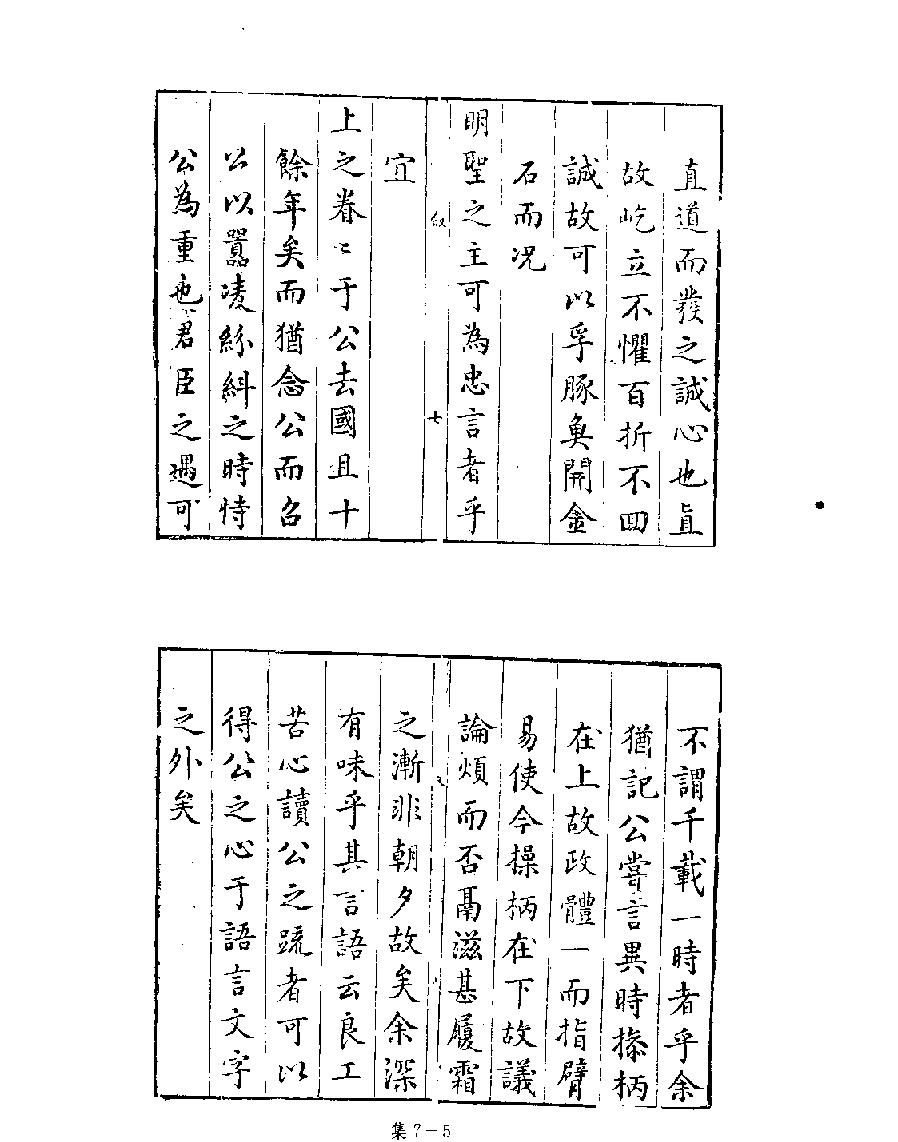 直道而發之誠心也眞
故屹立不懼百折不回
誠故可以孚豚魚開金
石而况
明聖之主可為忠言者乎
叙
七
宜
上之眷〻于公去國且十
餘年矣而猶念公而召
公以嚣凌絲糾之時恃
公為重也君臣之遇可
不謂千載一時者乎余
猶記公嘗言異時操柄
在上故政體一而指臂
易使今操柄在下故議
論煩而否鬲滋甚履霜
之漸非朝夕故矣余深
有味乎其言語云良工
苦心讀公之疏者可以
得公之心于語言文字
之外矣
集7－5